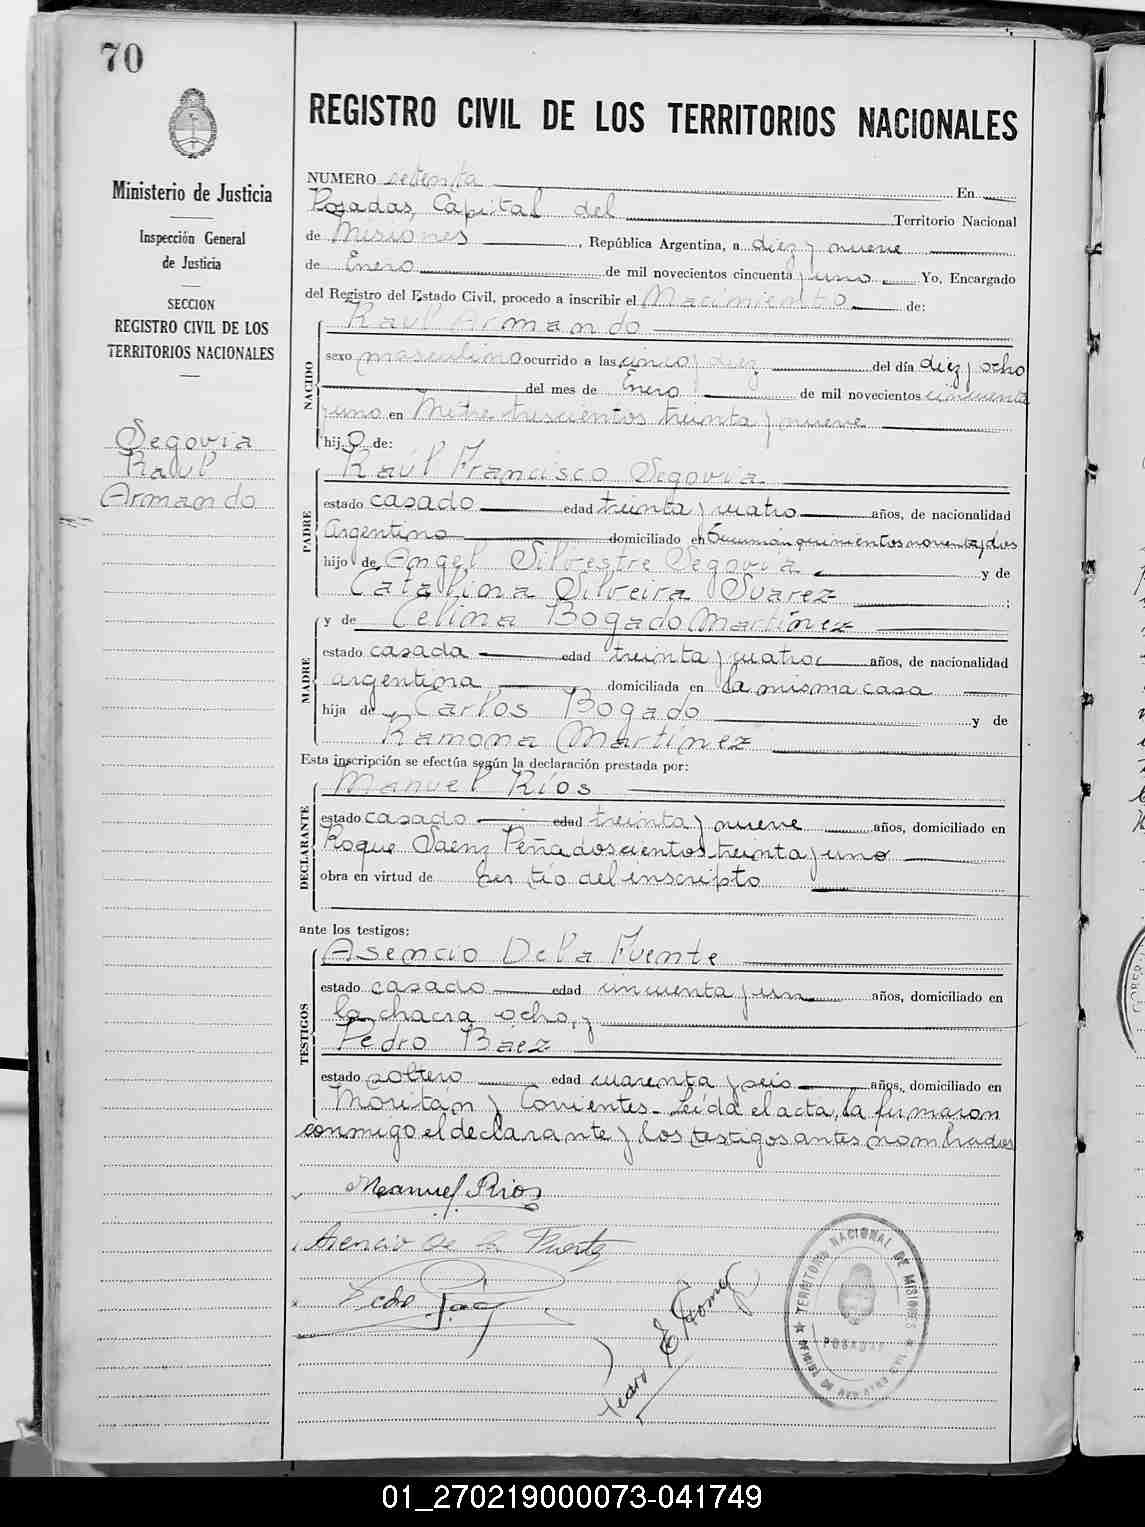 70
Ministerio de Justicia
Inspección General
de Justicia
SECCION
REGISTRO CIVIL DE LOS
TERRITORIOS NACIONALES
Segovia
Raúl
Armando
REGISTRO CIVIL DE LOS TERRITORIOS NACIONALES
NUMERO setenta En
Posadas, Capital del Territorio Nacional
de Misiones, República Argentina, a diez y nueve
de Enero de mil novecientos cincuenta y uno Yo, Encargado
del Registro del Estado Civil, procedo a inscribir el Nacimiento de:
NACIDO
Raúl Armando
sexo masculino ocurrido a las cinco y diez del día diez y ocho
del mes de Enero de mil novecientos cincuenta
y uno en Mitre trescientos treinta y nueve
hijo de:
PADRE
Raúl Francisco Segovia
estado casado edad treinta y cuatro años, de nacionalidad
argentino domiciliado en Tucumán quinientos noventa y dos
hijo de Angel Silvestre Segovia y de
Catalina Silveira Suarez ;
MADRE
y de Celina Bogado Martínez
estado casada edad treinta y cuatro años, de nacionalidad
argentina domiciliada en la misma casa
hija de Carlos Bogado y de
Ramona Martínez
Esta inscripción se efectúa según la declaración prestada por:
DECLARANTE
Manuel Ríos
estado casado edad treinta y nueve años, domiciliado en
Roque Saenz Peña doscientos treinta y uno
obra en virtud de ser tío del inscripto
ante los testigos:
TESTIGOS
Asencio De la Fuente
estado casado edad cincuenta y un años, domiciliado en
la chacra ocho, y
Pedro Báez
estado soltero edad cuarenta y seis años, domiciliado en
Moritan y Corrientes. Leída el acta, la firmaron
conmigo el declarante y los testigos antes nombrados
Manuel Rios
Asencio De la Fuente
Pedro Baez
E Gomez
TERRITORIO NACIONAL DE MISIONES
POSADAS
01_270219000073-041749